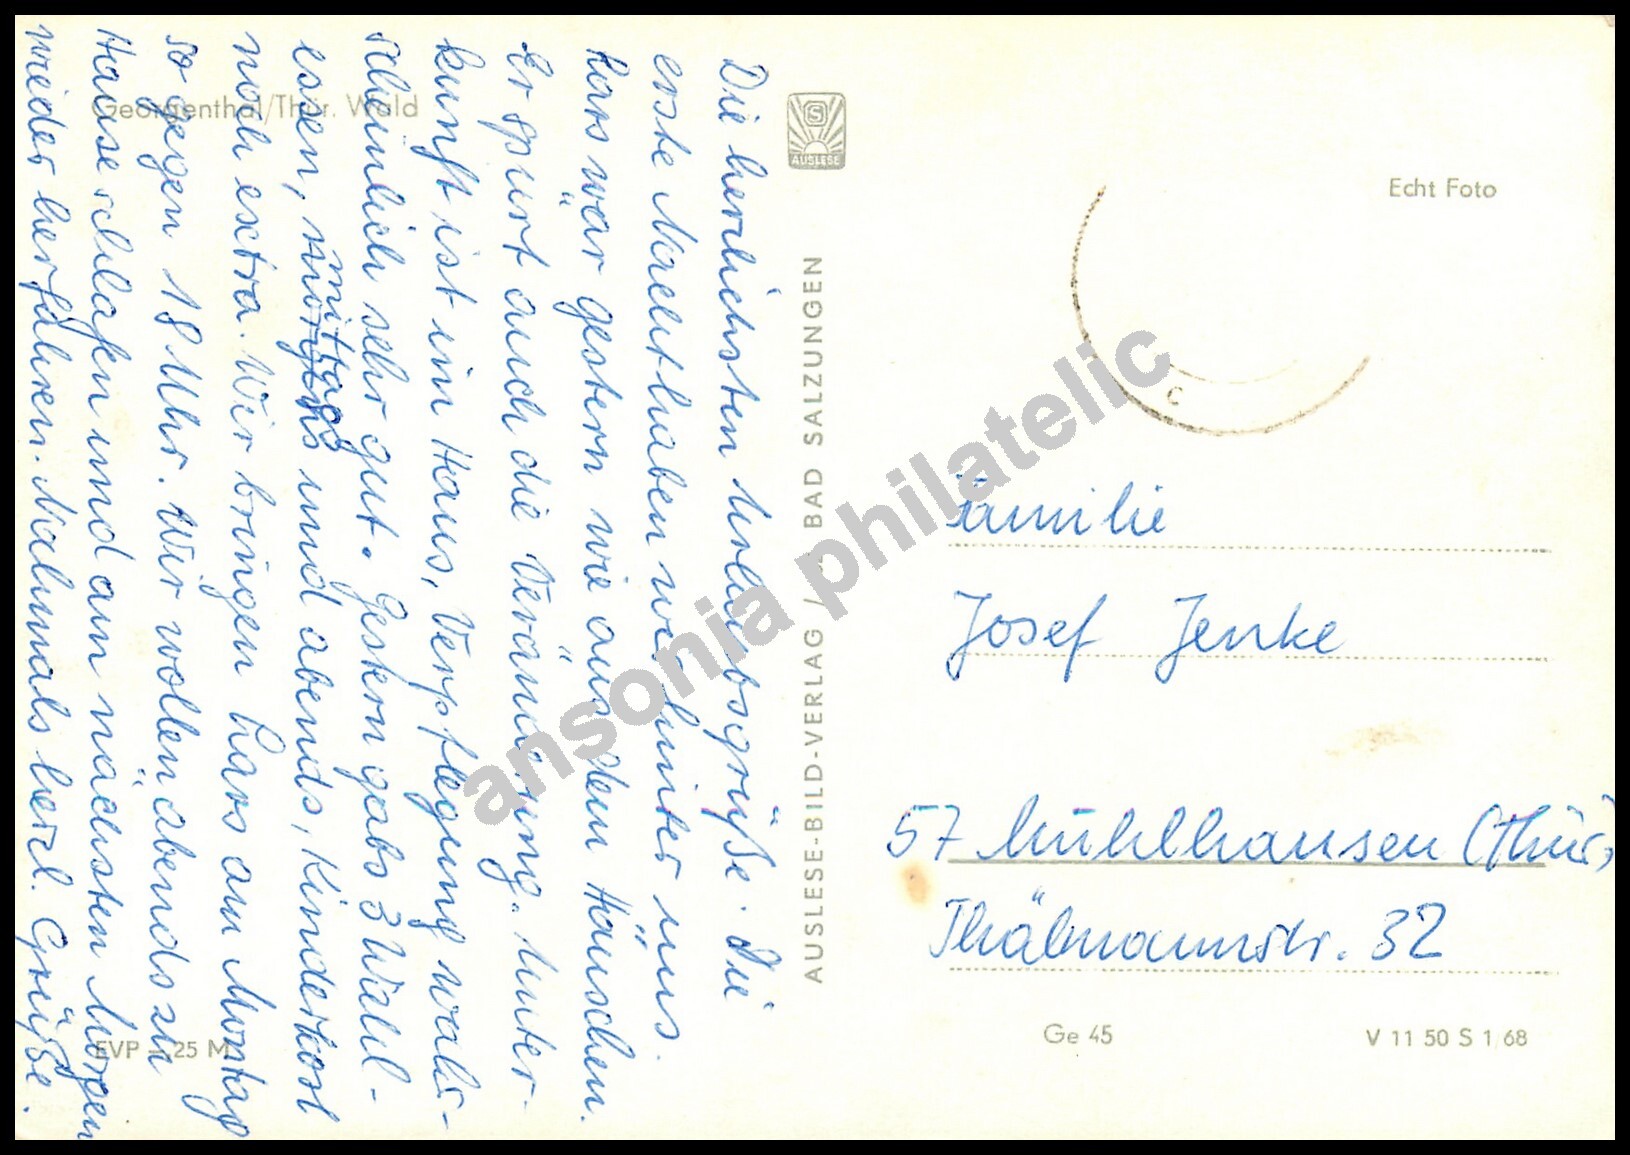 Georgenthal/Thür. Wald
Die herrlichsten Urlaubsgrüße. Die
erste Nacht haben wir hinter uns.
Lars war gestern wie aus dem Häuschen.
Er spürt auch die Veränderung. Unter-
kunft ist im Haus, Verpflegung wahr-
scheinlich sehr gut. Gestern gabs 3 Wahl-
essen, morgens mittags und abends, Kinderkost
noch extra. Wir bringen Lars am Montag
so gegen 18 Uhr. Wir wollen abends zu
Hause schlafen und am nächsten Morgen
wieder herfahren. Nochmals herzl. Grüße.
EVP -,25 M
AUSLESE
AUSLESE-BILD-VERLAG / BAD SALZUNGEN
Echt Foto
C
Familie
Josef Jenke
57 Mühlhausen (Thür)
Thälmannstr. 32
Ge 45
V 11 50 S 1/68
ansonia philatelic